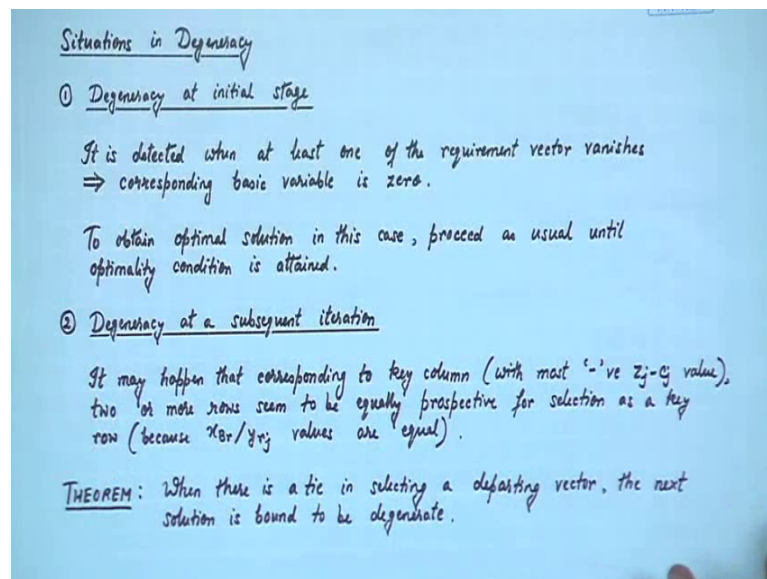 Situations in Degeneracy
① Degeneracy at initial stage
It is detected when at least one of the requirement vector vanishes
⇒ corresponding basic variable is zero.
To obtain optimal solution in this case, proceed as usual until
optimality condition is attained.
② Degeneracy at a subsequent iteration
It may happen that corresponding to key column (with most '-'ve Zj-Cj value),
two or more rows seem to be equally prospective for selection as a key
row (because xBr/yrj values are equal).
THEOREM: When there is a tie in selecting a departing vector, the next
solution is bound to be degenerate.